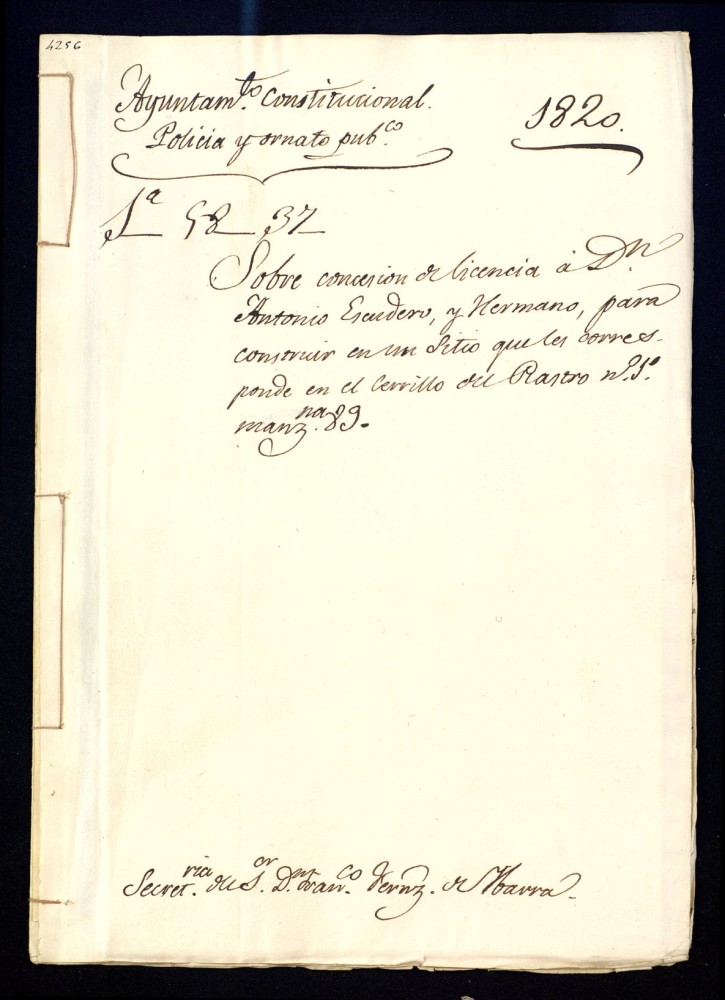 4256
Ayuntam.to Constitucional.
Policia y ornato pub.co
1820.
1a 58 37
Sobre concesion de licencia á Dn
Antonio Escudero, y Hermano, para
construir en un Sitio que les corres-
ponde en el Cerrillo del Rastro n.o 1.o
manz.na 89.
Secret.ria del S.or D.n Fran.co Fernz. de Ibarra.